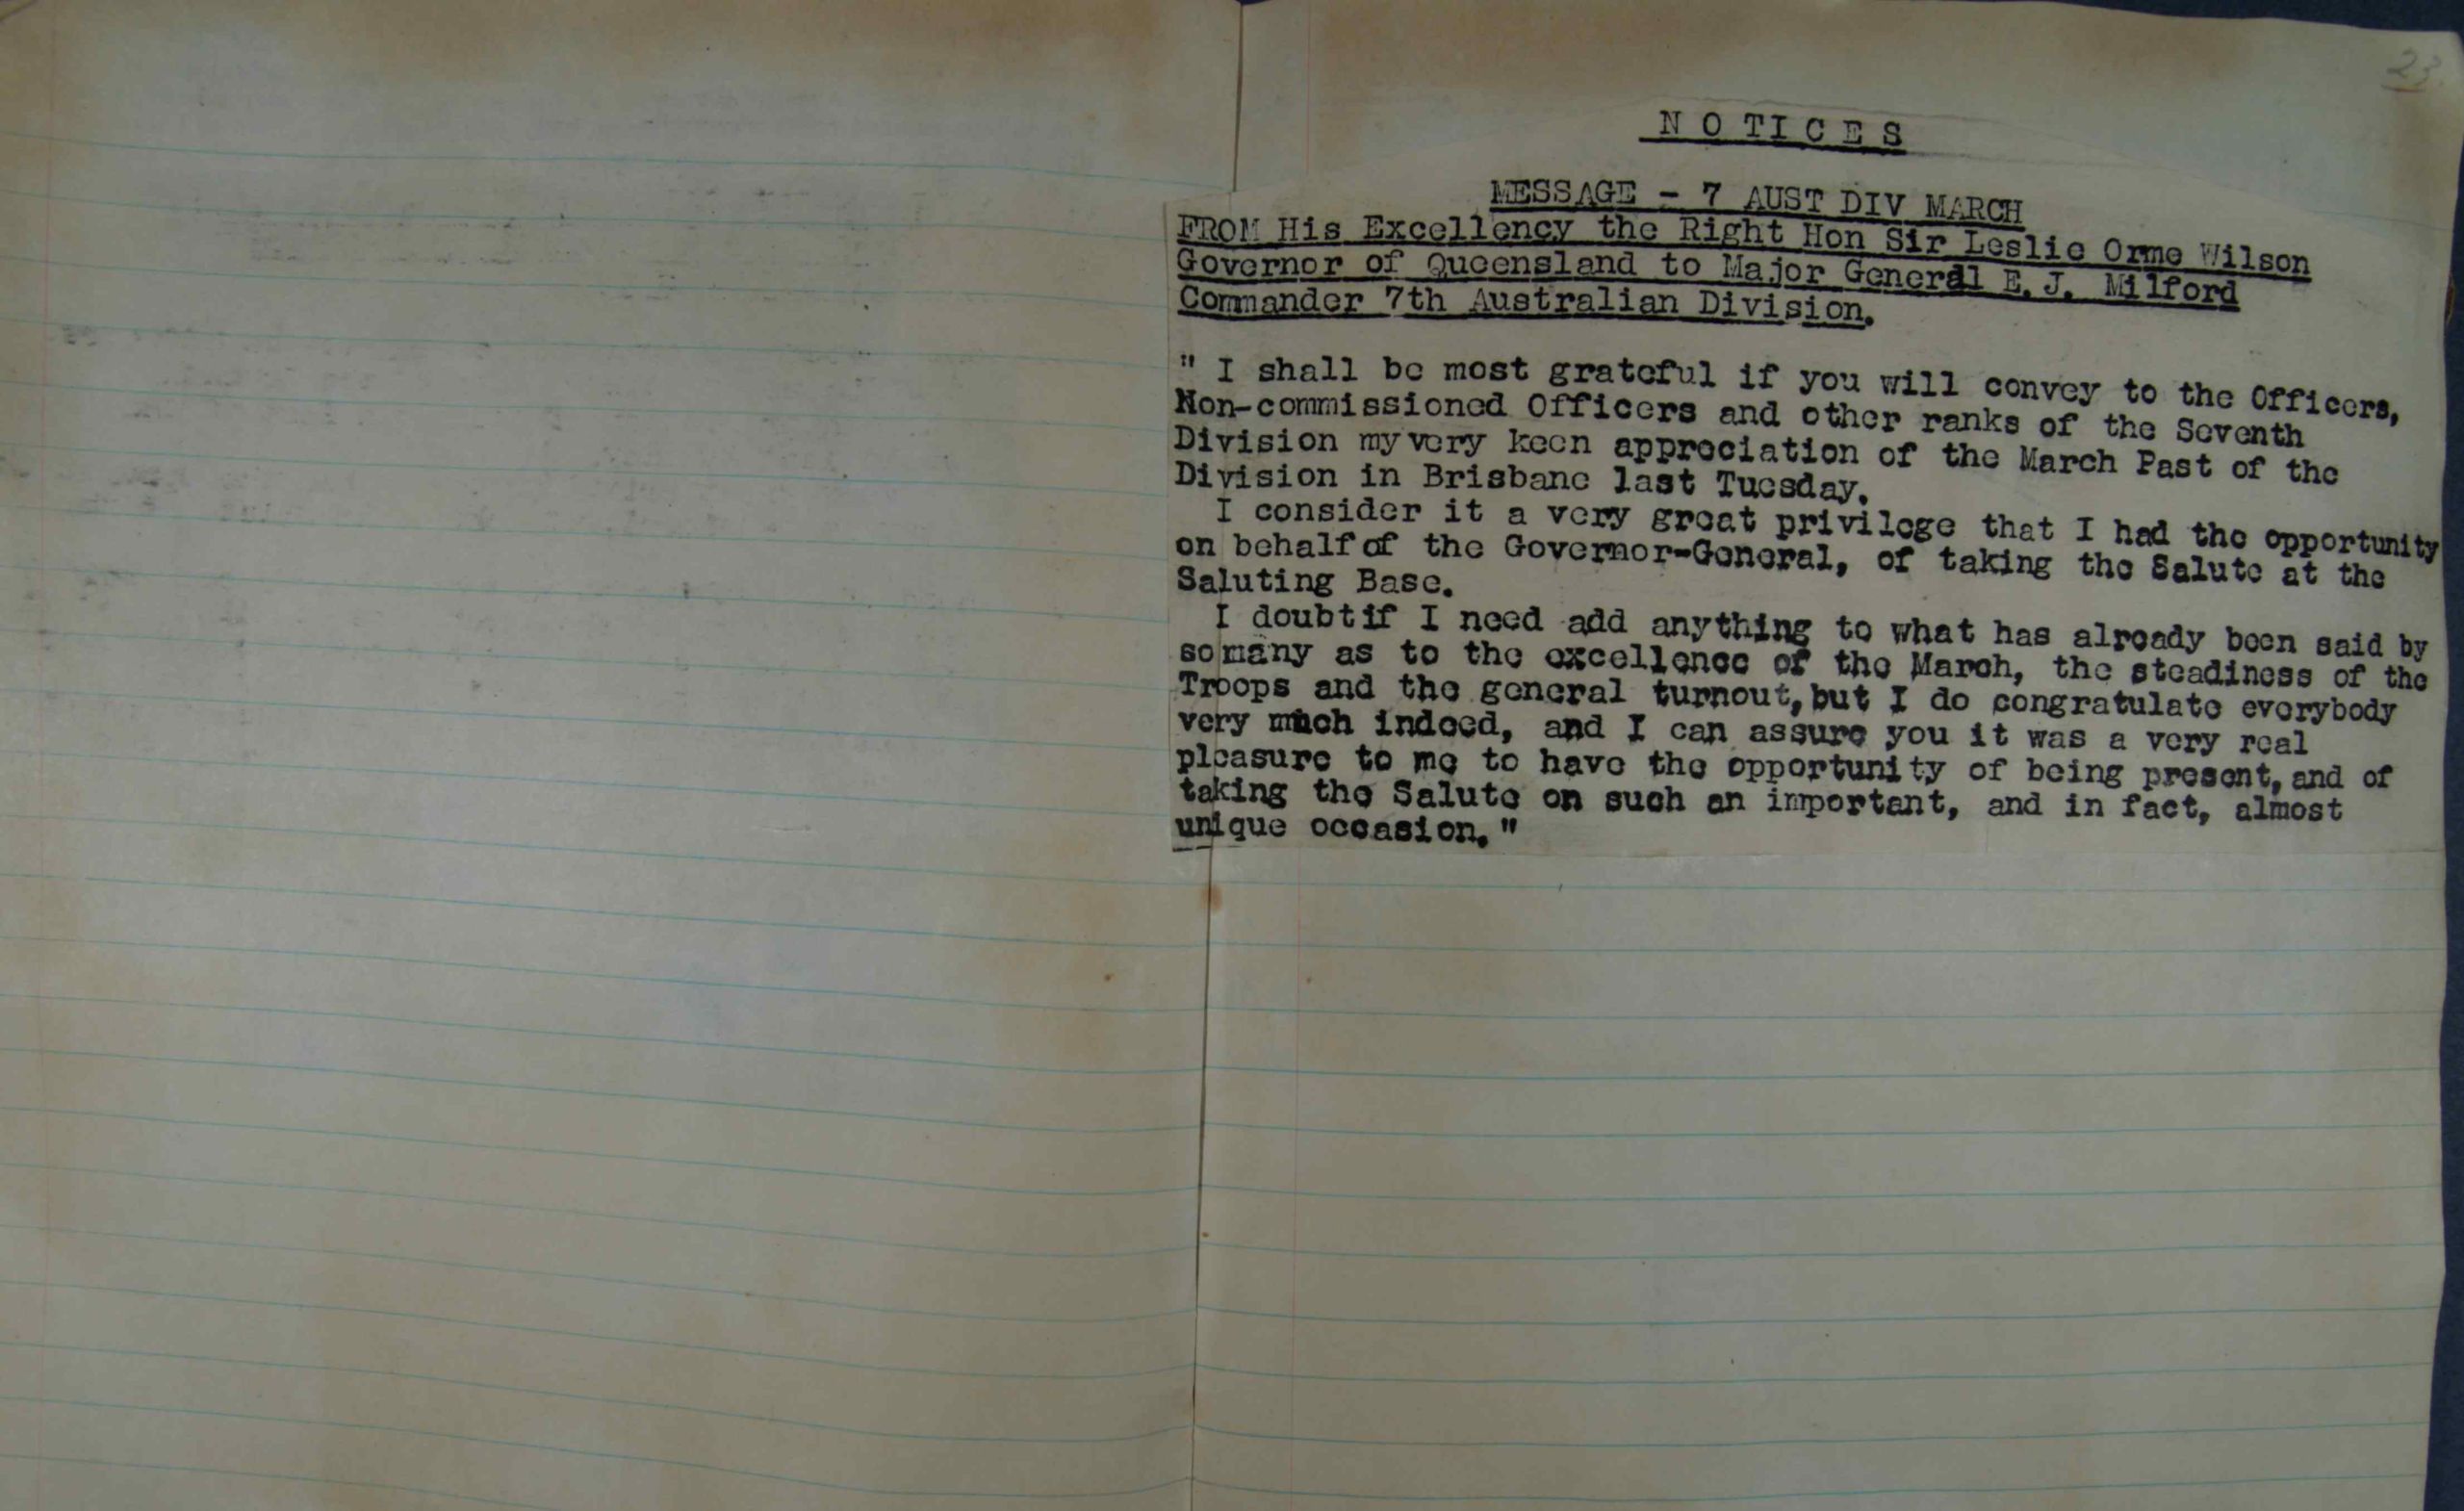 23.
N O T I C E S
MESSAGE - 7 AUST DIV MARCH
FROM His Excellency the Right Hon Sir Leslie Orme Wilson
Governor of Queensland to Major General E. J. Milford
Commander 7th Australian Division.
" I shall be most grateful if you will convey to the Officers,
Non-commissioned Officers and other ranks of the Seventh
Division my very keen appreciation of the March Past of the
Division in Brisbane last Tuesday.
I consider it a very great privilege that I had the opportunity
on behalf of the Governor-General, of taking the Salute at the
Saluting Base.
I doubt if I need add anything to what has already been said by
so many as to the excellence of the March, the steadiness of the
Troops and the general turnout, but I do congratulate everybody
very much indeed, and I can assure you it was a very real
pleasure to me to have the opportunity of being present, and of
taking the Salute on such an important, and in fact, almost
unique occasion."